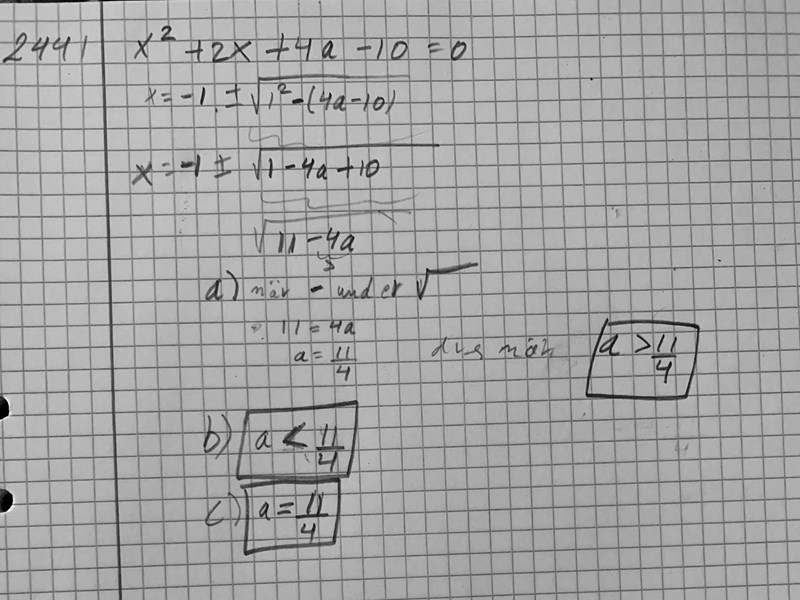 2441 x² + 2x + 4a - 10 = 0
x = -1 ± √1² - (4a - 10)
x = -1 ± √1 - 4a + 10
√11 - 4a
a) när - under √
11 = 4a
a = 11/4 dvs när a > 11/4
b) a < 11/4
c) a = 11/4